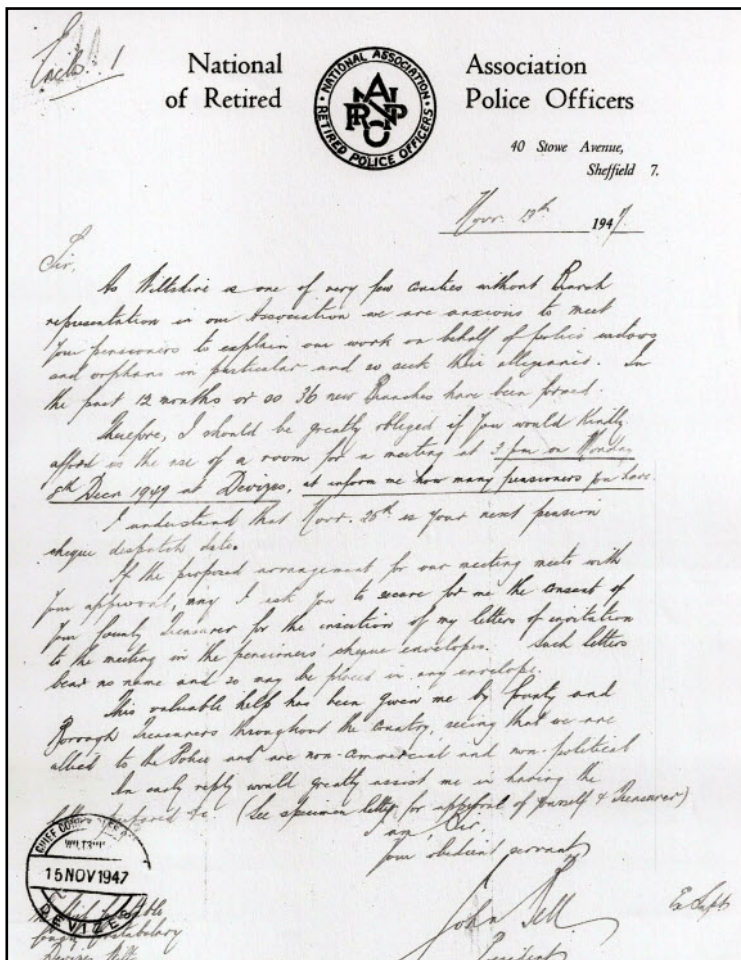 Encls. 1
National Association
of Retired Police Officers
NATIONAL ASSOCIATION
RETIRED POLICE OFFICERS
40 Stowe Avenue,
Sheffield 7.
Novr. 13th 1947.
Sir,
As Wiltshire is one of very few counties without Branch
representation in our Association we are anxious to meet
your pensioners to explain our work on behalf of police widows
and orphans in particular and so seek their allegiance. In
the past 12 months or so 36 new Branches have been formed.
Therefore, I should be greatly obliged if you would kindly
afford us the use of a room for a meeting at 3 pm on Monday
8th Decr 1947 at Devizes, inform me how many pensioners you have.
I understand that Novr. is your next pension
cheque dispatch date.
If the proposed arrangement for our meeting meets with
your approval, may I ask you to secure for me the consent of
your County Treasurer for the insertion of my letters of invitation
to the meeting in the pensioners' cheque envelopes. Such letters
bear no name and so may be placed in any envelope.
This valuable help has been given me by County and
Borough Treasurers throughout the country, seeing that we are
allied to the Police and are non-commercial and non-political
An early reply would greatly assist me in having the
prepared &c. (See specimen letter for approval of yourself & Treasurer)
I am, Sir,
Your obedient servant
John Bell Ex Supt
President
CHIEF
WILTS
15 NOV 1947
DEVIZES
Constabulary
Devizes, Wilts